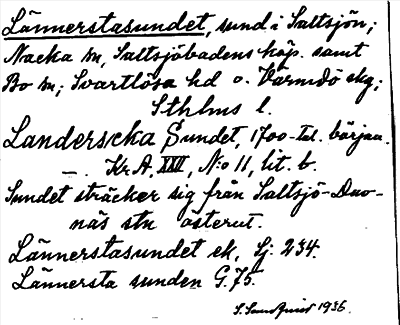 Lännerstasundet, sund i Saltsjön;
Nacka sn, Saltsjöbadens köp. samt
Bo sn; Svartlösa hd o. Värmdö skg;
Sthlms l.
Landersicka Sundet, 1700-tal. början.
Kr. A, XXII, N:o 11, lit. b.
Sundet sträcker sig från Saltsjö-Duv-
näs stn österut.
Lännerstasundet ek, Sj: 234.
Lännersta sunden G. 75.
1936.